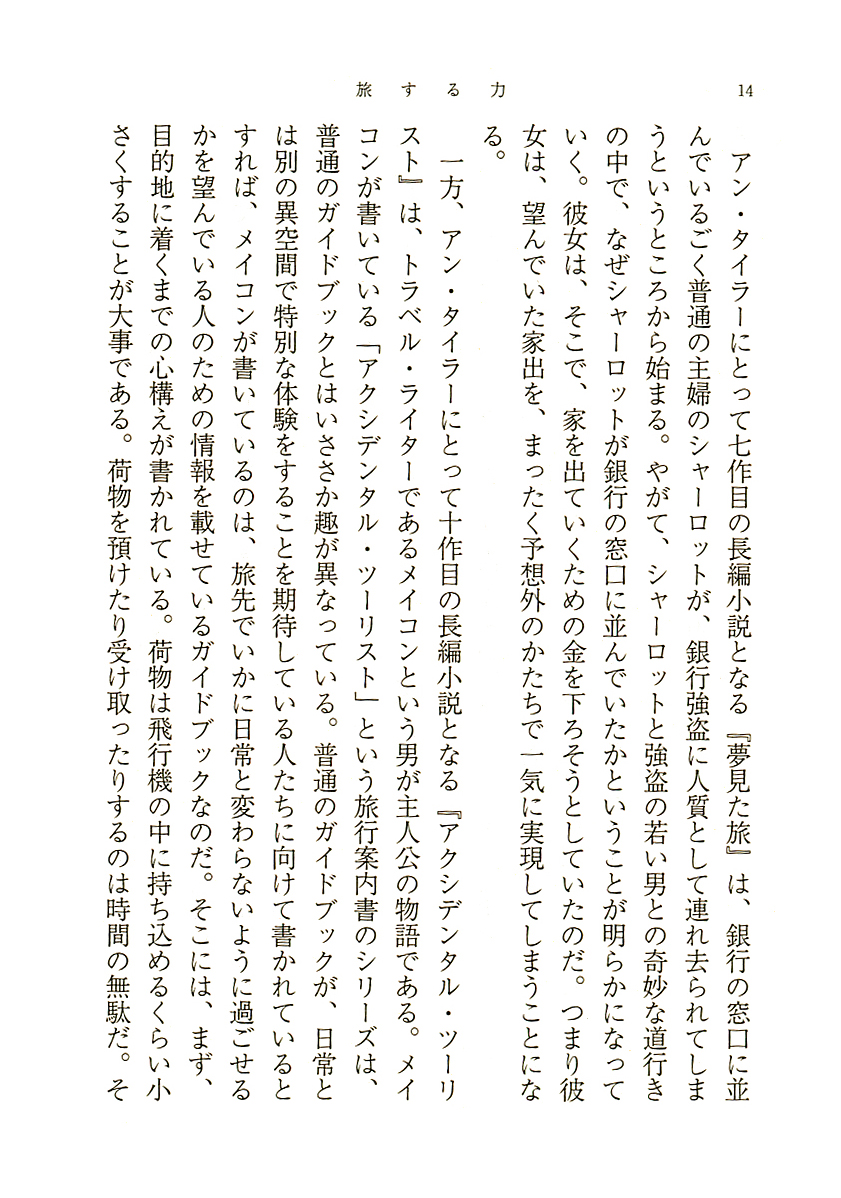 旅する力
14
アン・タイラーにとって七作目の長編小説となる『夢見た旅』は、銀行の窓口に並
んでいるごく普通の主婦のシャーロットが、銀行強盗に人質として連れ去られてしま
うというところから始まる。やがて、シャーロットと強盗の若い男との奇妙な道行き
の中で、なぜシャーロットが銀行の窓口に並んでいたかということが明らかになって
いく。彼女は、そこで、家を出ていくための金を下ろそうとしていたのだ。つまり彼
女は、望んでいた家出を、まったく予想外のかたちで一気に実現してしまうことにな
る。
一方、アン・タイラーにとって十作目の長編小説となる『アクシデンタル・ツーリ
スト』は、トラベル・ライターであるメイコンという男が主人公の物語である。メイ
コンが書いている「アクシデンタル・ツーリスト」という旅行案内書のシリーズは、
普通のガイドブックとはいささか趣が異なっている。普通のガイドブックが、日常と
は別の異空間で特別な体験をすることを期待している人たちに向けて書かれていると
すれば、メイコンが書いているのは、旅先でいかに日常と変わらないように過ごせる
かを望んでいる人のための情報を載せているガイドブックなのだ。そこには、まず、
目的地に着くまでの心構えが書かれている。荷物は飛行機の中に持ち込めるくらい小
さくすることが大事である。荷物を預けたり受け取ったりするのは時間の無駄だ。そ